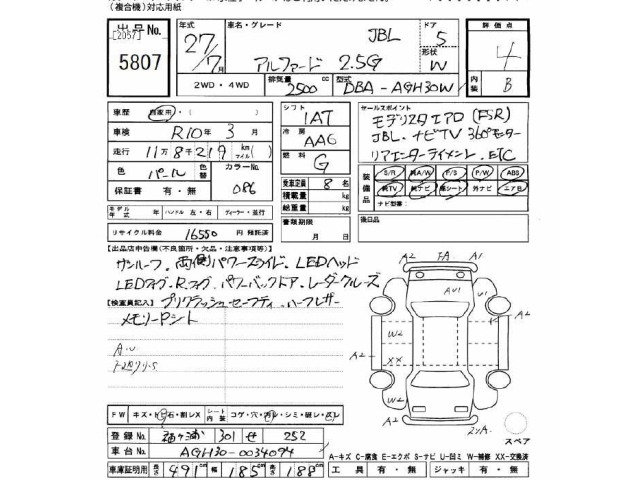 (複合機)対応用紙
出品No.
[2057]
5807
年式
27/7月
車名・グレード
JBL
アルファード 2.5G
ドア
5
形状
W
評価点
4
内装
B
2WD・4WD
排気量
2500
cc
型式
DBA-AGH30W
車歴
自家用・( )
車検
R10年 3月
走行
11万8千219
km
マイル( )
色
パール
色替
カラーNo.
086
保証書 有・無
シフト
IAT
冷房
AAC
燃料
G
乗車定員 8 名
積載量 kg
総重量 kg
セールスポイント
モデリスタエアロ(FSR)
JBL.ナビTV 360°モニター
リアエンターテイメント.ETC
装備品
S/R
純A/W
P/S
P/W
ABS
純TV
純ナビ
革シート
外ナビ
エアB
ナビ型番:
モデル年式 年
ハンドル 左・右
ディーラー・並行
リサイクル料金 16550 円 預託済
書類期限
月 日
後日品
[出品店申告欄(不良箇所・欠品・注意事項等)]
サンルーフ.両側パワースライド.LEDヘッド
LEDフォグ.Rフォグ.パワーバックドア.レーダークルーズ
[検査員記入]
プリクラッシュセーフティ.ハーフレザー
メモリーPシート
A2
FA
A1
AU1
U1
A2
W2
XX
A2
A2
スペア
FW
キズ・飛石・割レX
シート内装
コゲ・穴・汚レ・シミ・破レ・スレ
登録No. 袖ヶ浦 301 せ 252
車台No. AGH30-0034094
車庫証明用 長さ 491 cm 幅 185 cm 高さ 188 cm
A-キズ C-腐食 E-エクボ S-サビ U-凹ミ W-補修 XX-交換済
工具 有・無
ジャッキ 有・無